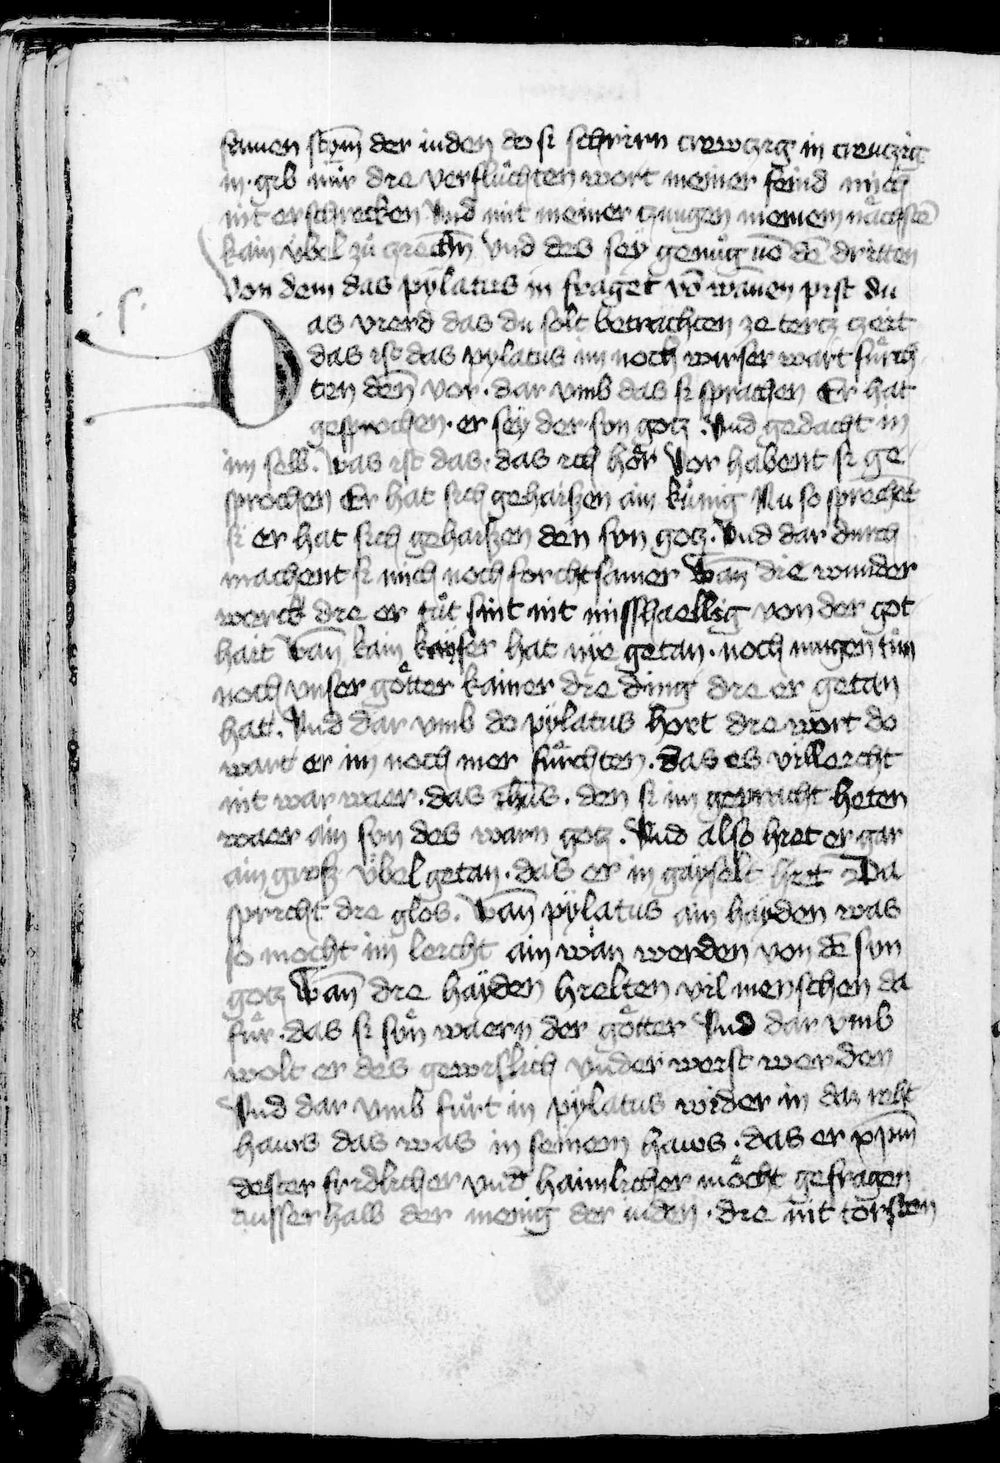 samen stym̄ der iuden do si schrirn crewczig in creuczig
in · gib mir die verflůchten wort meiner feind mich
nit erschrecken Vnd mit meiner zungen meinem nächstē
kain v̈bel zů zriechn̄ Vnd des sey genůg vō dē dritten
Von dem das pÿlatus in fraget vō wannen pist du
Das vierd das du solt betrachten ze tercz czeit
das ist das pylatus im noch wirser wart fůrch
ten deñ vor · dar vmb das si sprachen Er hat
gesprochen · er seÿ der sun gotz . Vnd gedacht in
im selb . was ist das · das ich hör Vor habent si ge
sprochen Er hat sich gehaiszen ain kůnig Nu so sprechet
si er hat sich gehaiszen den sun gotz . Vnd dar durch
machent si mich noch forchtsamer Wan̄ die wunder
werck die er tůt sint nit misshaellig von der got
hait Wan̄ kain kaÿser hat nÿe getan · noch mugen tůn
noch vnser götter kainer die ding die er getan
hat . Vnd dar vmb do pÿlatus hort die wort do
wart er im noch mer fůrchten . das es villeicht
nit war waer · das ihūs . den si im gepracht heten
waer ain sun des warn gotz . Vnd also hiet er gar
ain grosz v̈bel getan · das er in gayselt hiet Da
spricht die glos . Wan̄ pÿlatus ain haÿden was
so mocht im leicht ain wän werden von dē sun
gotz Wan̄ die haÿden hielten vil menschen da
fůr · das si sůn waern der götter Vnd dar vmb
wolt er des gewislich vnderweist werden
Vnd dar vmb fůrt in pÿlatus wider in daz richt
haws das was in seinem haws · das er
dester fridlicher vnd haimlicher möcht gefragen
ausserhalb der menig der iuden · die nit torsten